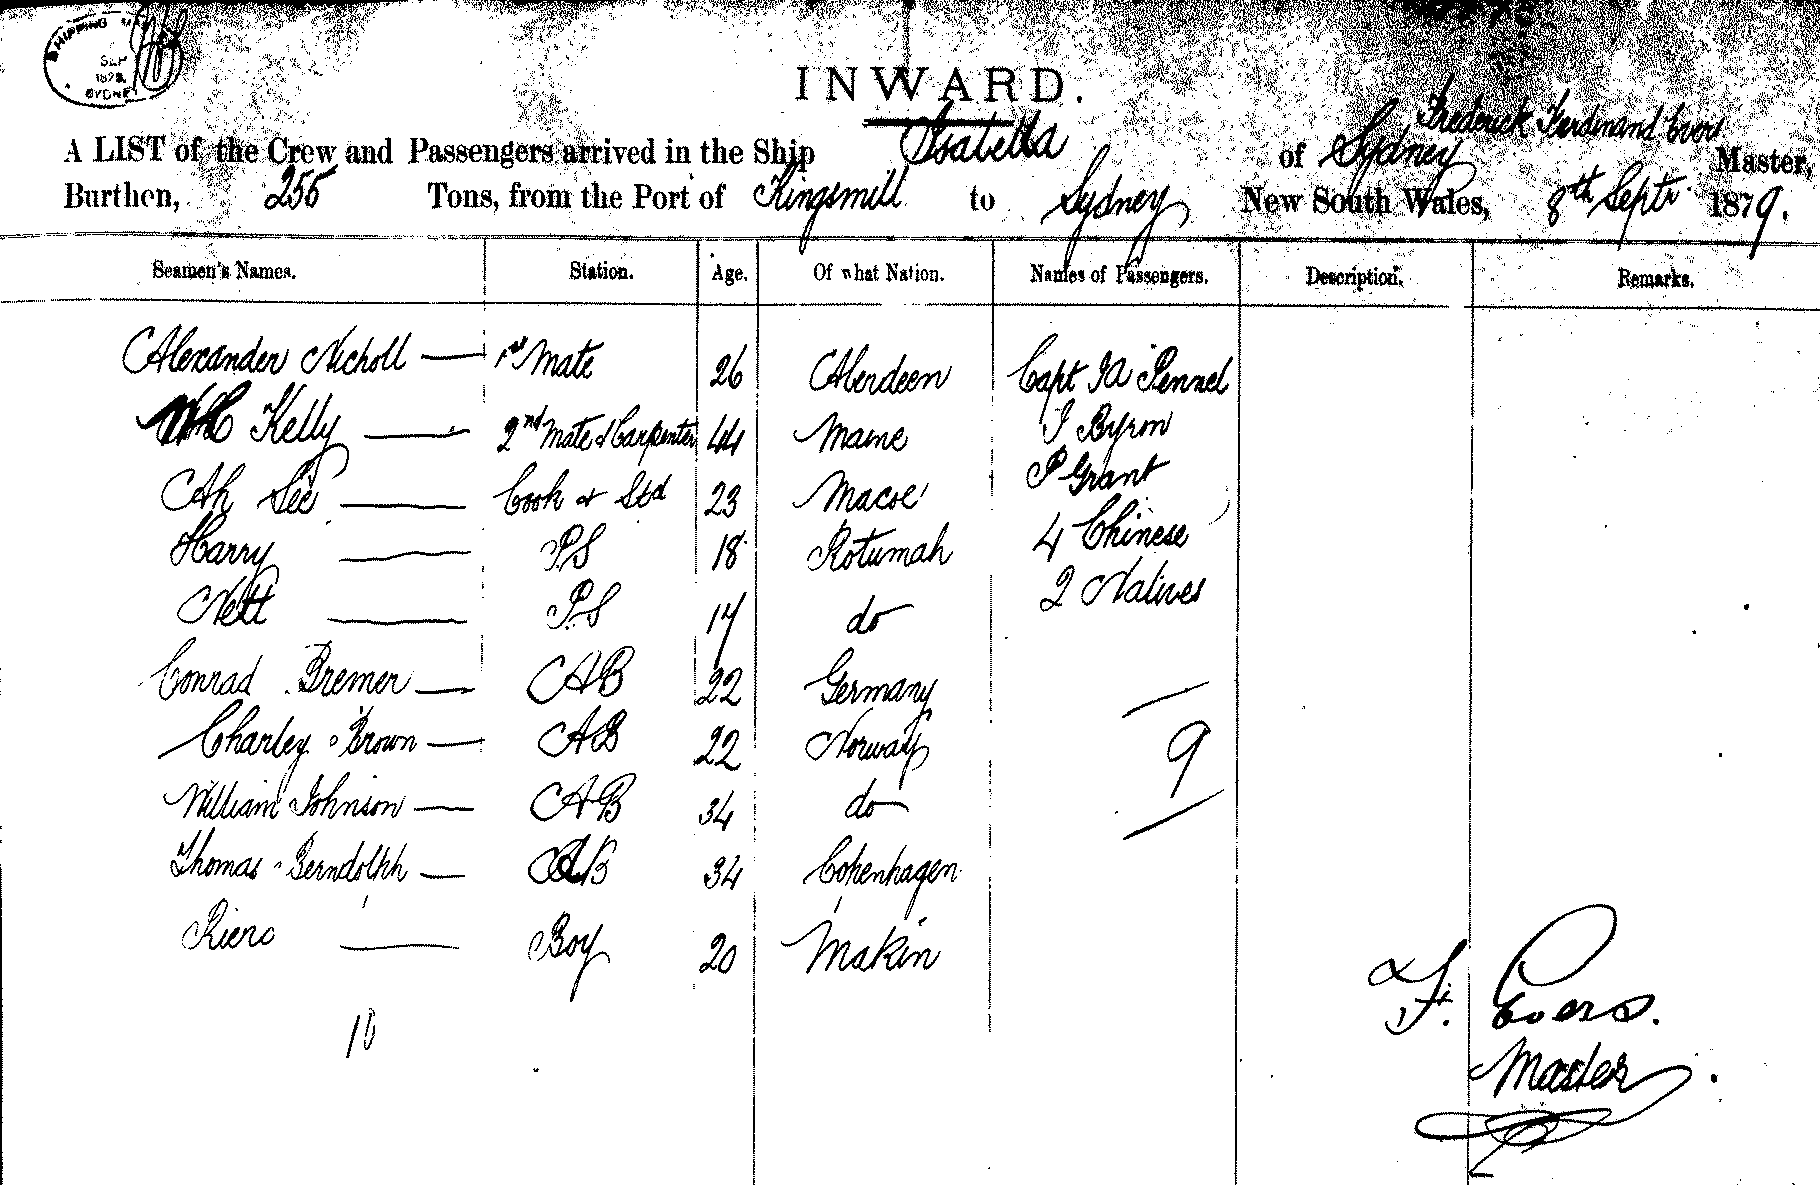 SHIPPING MA
SEP
1879
SYDNEY
INWARD.
Frederick Ferdinand Evers
A LIST of the Crew and Passengers arrived in the Ship Isabella of Sydney Master,
Burthen, 255 Tons, from the Port of Kingsmill to Sydney New South Wales, 8th Septr 1879.
Seamen's Names. Station. Age. Of what Nation. Names of Passengers. Description. Remarks.
Alexander Nicholl 1st Mate 26 Aberdeen Capt Pennel
Kelly 2nd Mate & Carpenter 44 Maine J Byron
Ah See Cook & Std 23 Macoe P Grant
Harry P.S 18 Rotumah 4 Chinese
Nett P.S 17 do 2 Natives
Conrad Bremer AB 22 Germany
Charley Brown AB 22 Norway 9
William Johnson AB 34 do
Thomas Berndolph AB 34 Copenhagen
Boy 20 Makin
10
F. Evers.
Master.